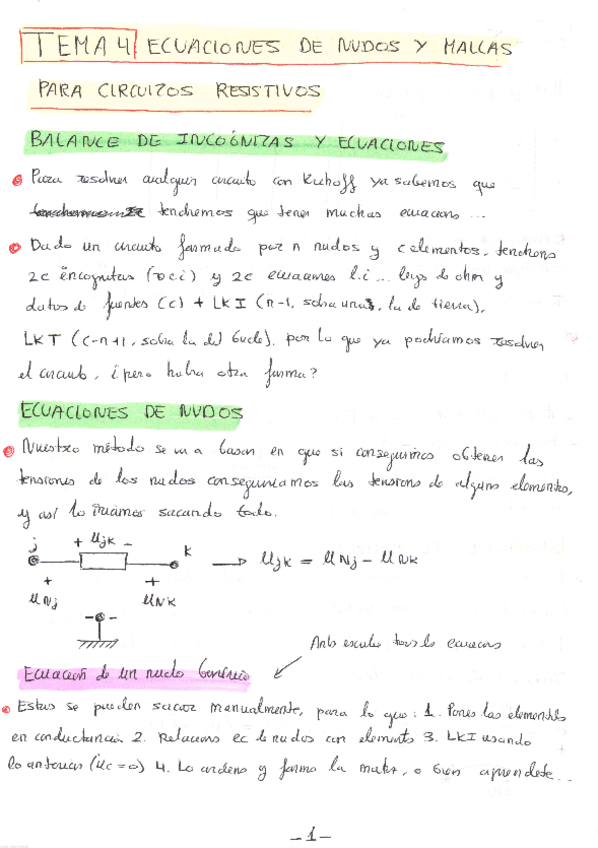 TEMA 4 ECUACIONES DE NUDOS Y MALLAS
PARA CIRCUITOS RESISTIVOS
BALANCE DE INCOGNITAS Y ECUACIONES
Para resolver cualquier circuito con Kirhoff ya sabemos que
tendremos que tener muchas ecuaciones ...
Dado un circuito formado por n nudos y c elementos, tendremos
2c incognitas (v o i) y 2c ecuaciones l.i ... leyes de ohm y
datos de fuentes (c) + LKI (n-1, sobra una, la de tierra),
LKT (c-n+1, sobra la del bucle), por lo que ya podríamos resolver
el circuito, ¿pero habra otra forma?
ECUACIONES DE NUDOS
Nuestro método se va a basar en que si conseguimos obtener las
tensiones de los nudos conseguiríamos las tensiones de algunos elementos,
y así lo iríamos sacando todo.
j + Ujk - k → Ujk = UNj - UNk
+ +
UNj UNk
- -
Ecuación de un nudo Genérico
Estas se pueden sacar manualmente, para lo que: 1. Pones los elementos
en conductancia 2. Relaciones ec de nudos con elements 3. LKI usando
lo anterior (ic=0) 4. Lo ordeno y formo la matriz, o bien aprendete...
-1-